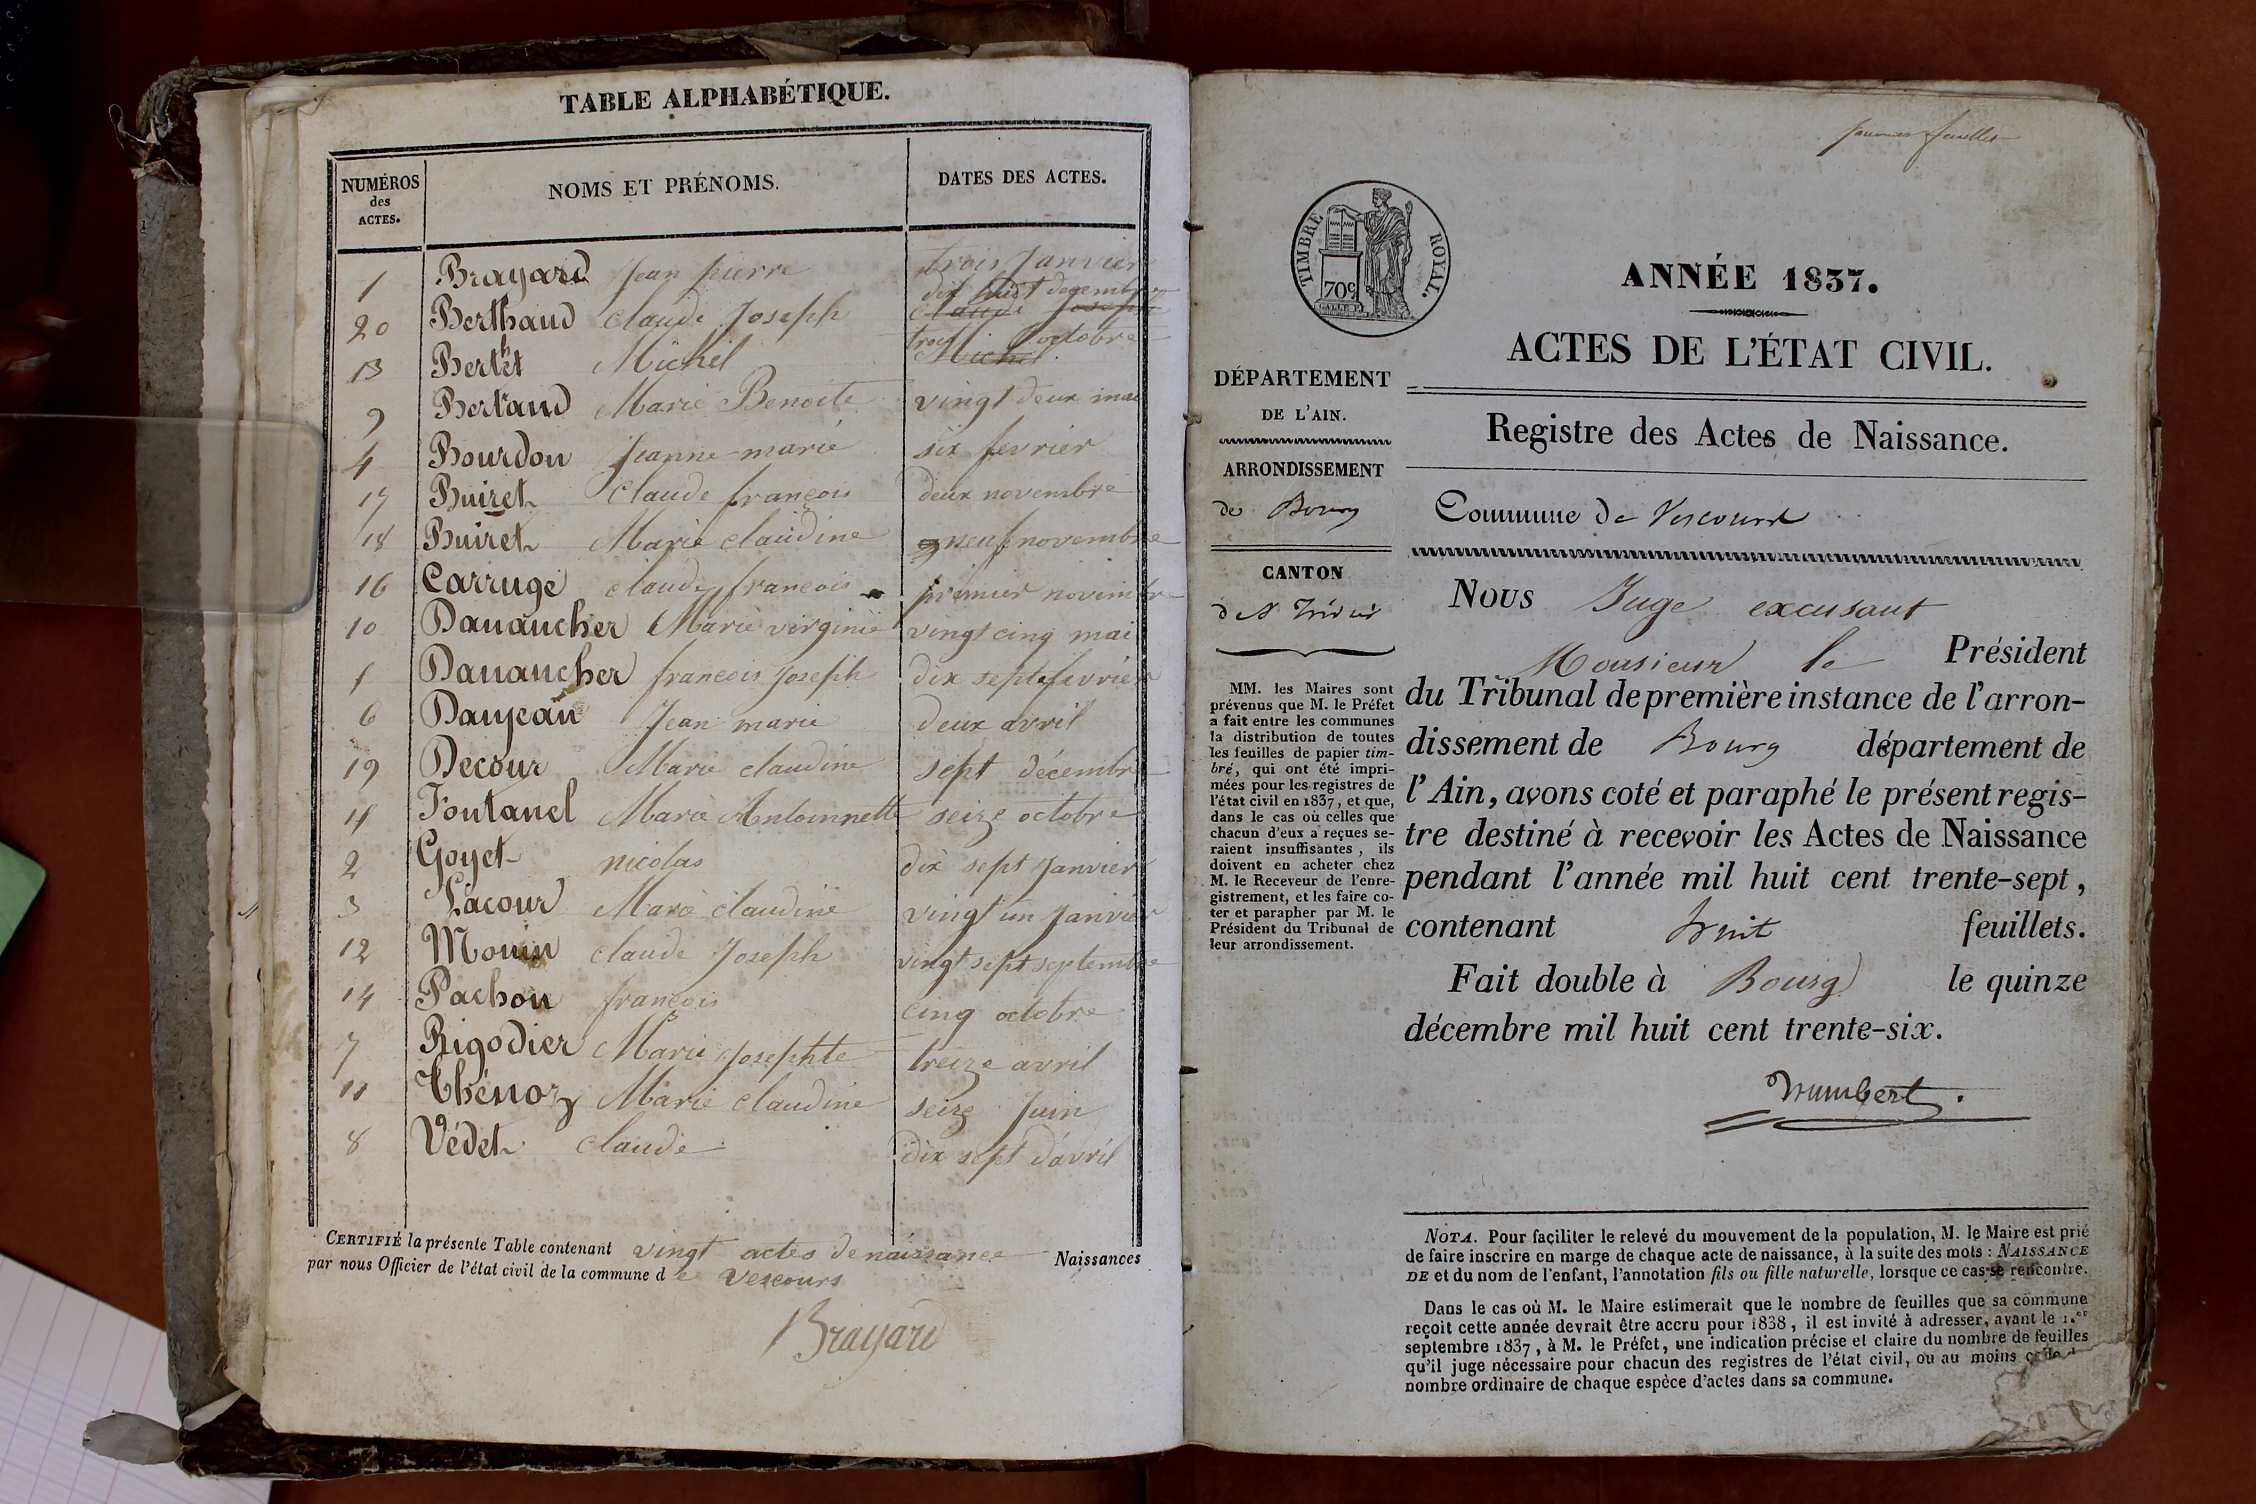 TABLE ALPHABÉTIQUE.
NUMÉROS des ACTES. NOMS ET PRÉNOMS. DATES DES ACTES.
1 Brayard Jean pierre trois Janvier
dix huit decembre
20 Berthaud claude Joseph claude Joseph
trois octobre
13 Berthet Michel Michel
9 Bertaud Marie Benoite vingt deux mai
4 Bourdon Jeanne marie six fevrier
17 Buiret claude françois deux novembre
18 Buiret Marie claudine neuf novembre
16 Carruge claude françois premier novembre
10 Danancher Marie virginie vingt cinq mai
Danancher francois Joseph dix sept fevrier
6 Danjean Jean marie deux avril
19 Decour Marie claudine sept décembre
Fontanel Marie Antoinnette seize octobre
2 Goyet nicolas dix sept Janvier
3 Lacour Marie claudine vingt un Janvier
12 Monin claude Joseph vingt sept septembre
14 Pachon françois cinq octobre
7 Rigodier Marie Josephte treize avril
11 Thénoz Marie claudine seize Juin
8 Védet claude dix sept d'avril
CERTIFIÉ la présente Table contenant vingt actes de naissance Naissances
par nous Officier de l'état civil de la commune de Vescours
Brayard
feuilles
TIMBRE ROYAL.
70c
ANNÉE 1837.
ACTES DE L'ÉTAT CIVIL.
DÉPARTEMENT
DE L'AIN.
ARRONDISSEMENT
de Bourg
CANTON
de St Trivier
MM. les Maires sont
prévenus que M. le Préfet
a fait entre les communes
la distribution de toutes
les feuilles de papier tim-
bré, qui ont été impri-
mées pour les registres de
l'état civil en 1837, et que,
dans le cas où celles que
chacun d'eux a reçues se-
raient insuffisantes, ils
doivent en acheter chez
M. le Receveur de l'enre-
gistrement, et les faire co-
ter et parapher par M. le
Président du Tribunal de
leur arrondissement.
Registre des Actes de Naissance.
Commune de Vescours
Nous Juge excusant
Monsieur le Président
du Tribunal de première instance de l'arron-
dissement de Bourg département de
l'Ain, avons coté et paraphé le présent regis-
tre destiné à recevoir les Actes de Naissance
pendant l'année mil huit cent trente-sept,
contenant huit feuillets.
Fait double à Bourg le quinze
décembre mil huit cent trente-six.
Humbert
NOTA. Pour faciliter le relevé du mouvement de la population, M. le Maire est prié
de faire inscrire en marge de chaque acte de naissance, à la suite des mots : NAISSANCE
DE et du nom de l'enfant, l'annotation fils ou fille naturelle, lorsque ce cas se rencontre.
Dans le cas où M. le Maire estimerait que le nombre de feuilles que sa commune
reçoit cette année devrait être accru pour 1838, il est invité à adresser, avant le 1.er
septembre 1837, à M. le Préfet, une indication précise et claire du nombre de feuilles
qu'il juge nécessaire pour chacun des registres de l'état civil, ou au moins
nombre ordinaire de chaque espèce d'actes dans sa commune.